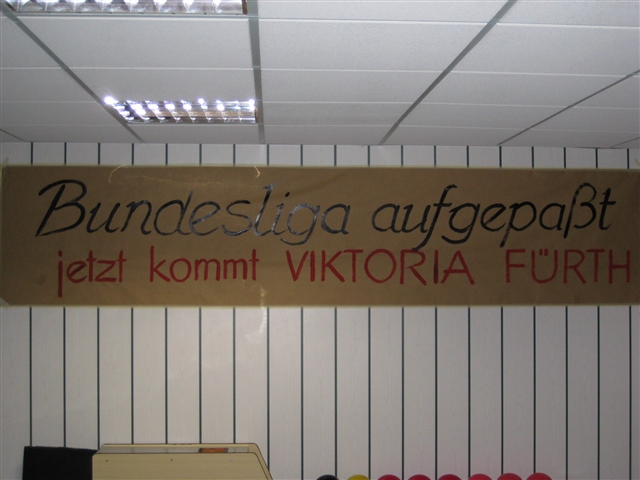 Bundesliga aufgepaßt
jetzt kommt VIKTORIA FÜRTH